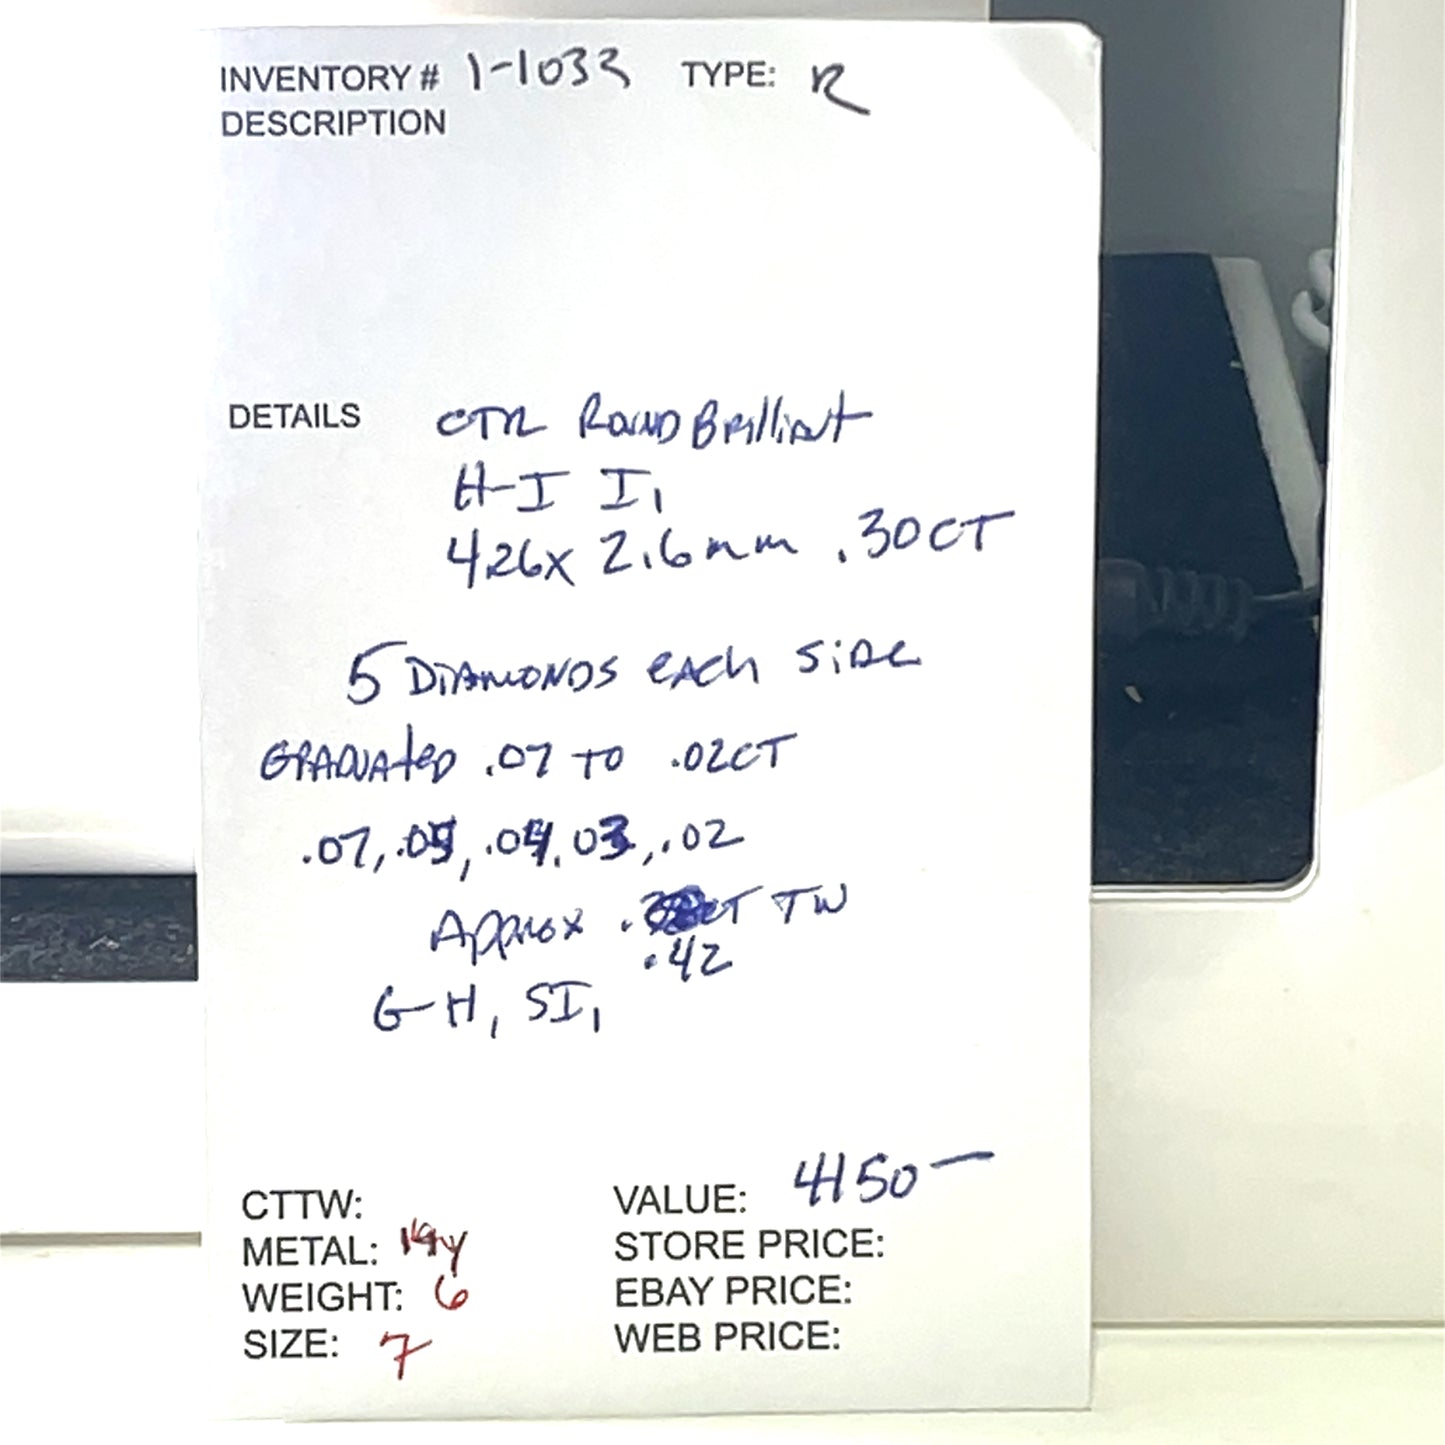 INVENTORY # 1-1033 TYPE: R
DESCRIPTION
DETAILS CTR ROUND Brilliant
H-I I1
4.26x 2.6mm .30CT
5 DIAMONDS eACh SiDe
GRADUAteD .07 TO .02CT
.07, .05, .04, .03, .02
Approx CT TW
.42
G-H, SI1
CTTW:
METAL: 14y
WEIGHT: 6
SIZE: 7
VALUE: 4150—
STORE PRICE:
EBAY PRICE:
WEB PRICE: